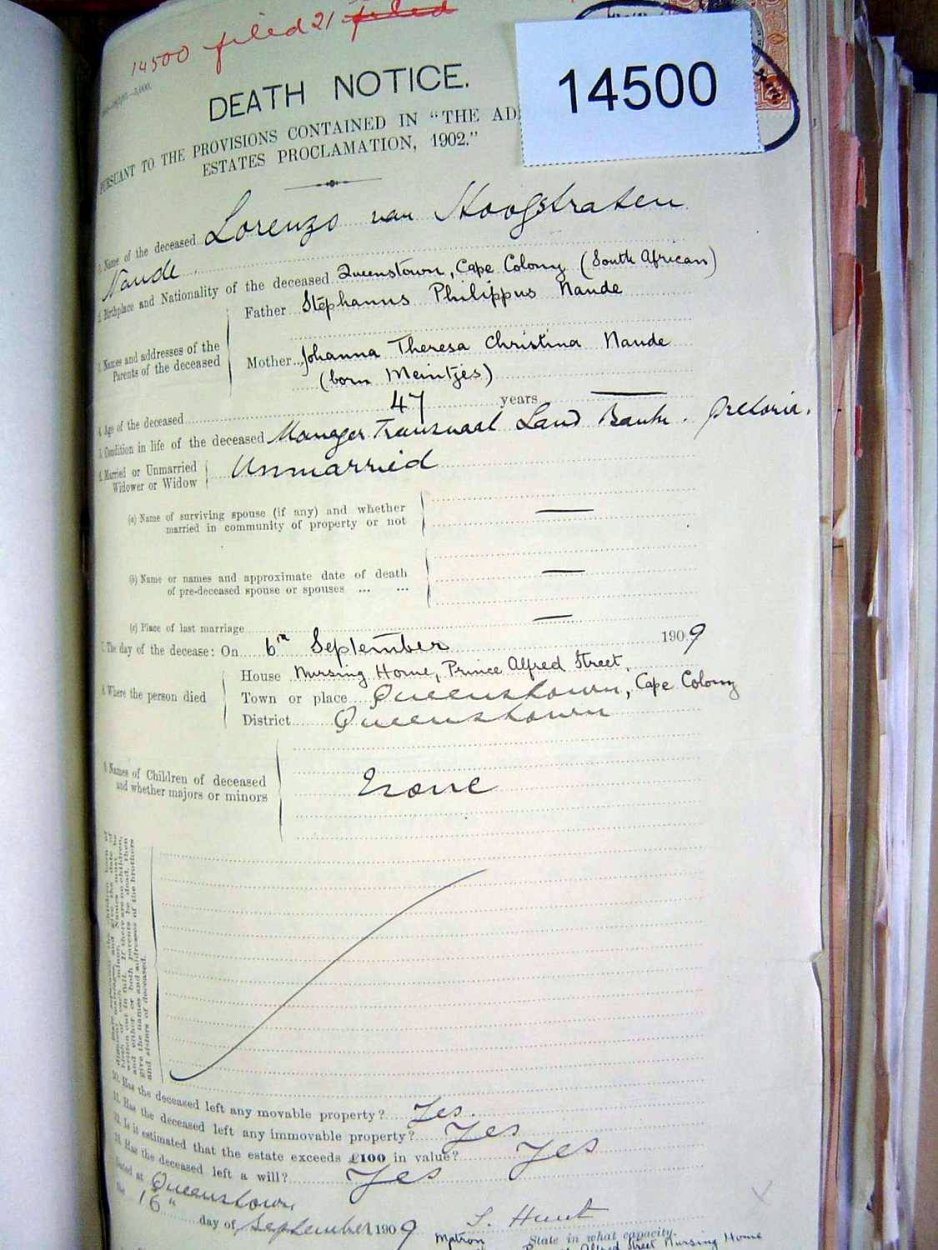 14500 filed 21 filed
14500
DEATH NOTICE.
PURSUANT TO THE PROVISIONS CONTAINED IN "THE AD
ESTATES PROCLAMATION, 1902."
1. Name of the deceased Lorenzo van Hoogstraten
Naude
2. Birthplace and Nationality of the deceased Queenstown, Cape Colony (South African)
3. Names and addresses of the Parents of the deceased
Father Stephanus Philippus Naude
Mother Johanna Theresa Christina Naude
(born Meintjes)
4. Age of the deceased 47 years —
5. Condition in life of the deceased Manager Transvaal Land Bank. Pretoria.
6. Married or Unmarried
Widower or Widow
Unmarried
(a) Name of surviving spouse (if any) and whether
married in community of property or not
—
(b) Name or names and approximate date of death
of pre-deceased spouse or spouses ... ...
—
(c) Place of last marriage —
7. The day of the decease: On 6th September 1909
8. Where the person died
House Nursing Home, Prince Alfred Street,
Town or place Queenstown, Cape Colony
District Queenstown
9. Names of Children of deceased
and whether majors or minors
None
give the names and addresses of the brothers
and sisters of deceased.
10. Has the deceased left any movable property? Yes.
11. Has the deceased left any immovable property? Yes
12. Is it estimated that the estate exceeds £100 in value? Yes
13. Has the deceased left a will? Yes
Dated at Queenstown
the 16" day of September 1909
S. Hunt
Matron State in what capacity.
Alfred Street Nursing Home